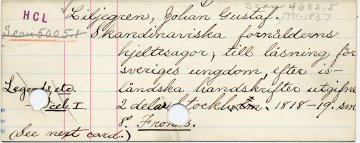 Scan 4682.5
HCL
Liljegren, Johan Gustaf. 1791-1837
Scan 5005.1
Skandinaviska fornålderns
hjeltesagor; till läsning för
sveriges ungdom, efter is-
Legends, etc.
ländska handskrifter utgifne
Icel. I.
2 delar Stockholm. 1818-19. sm
8º. Fronts.
(See next card.)